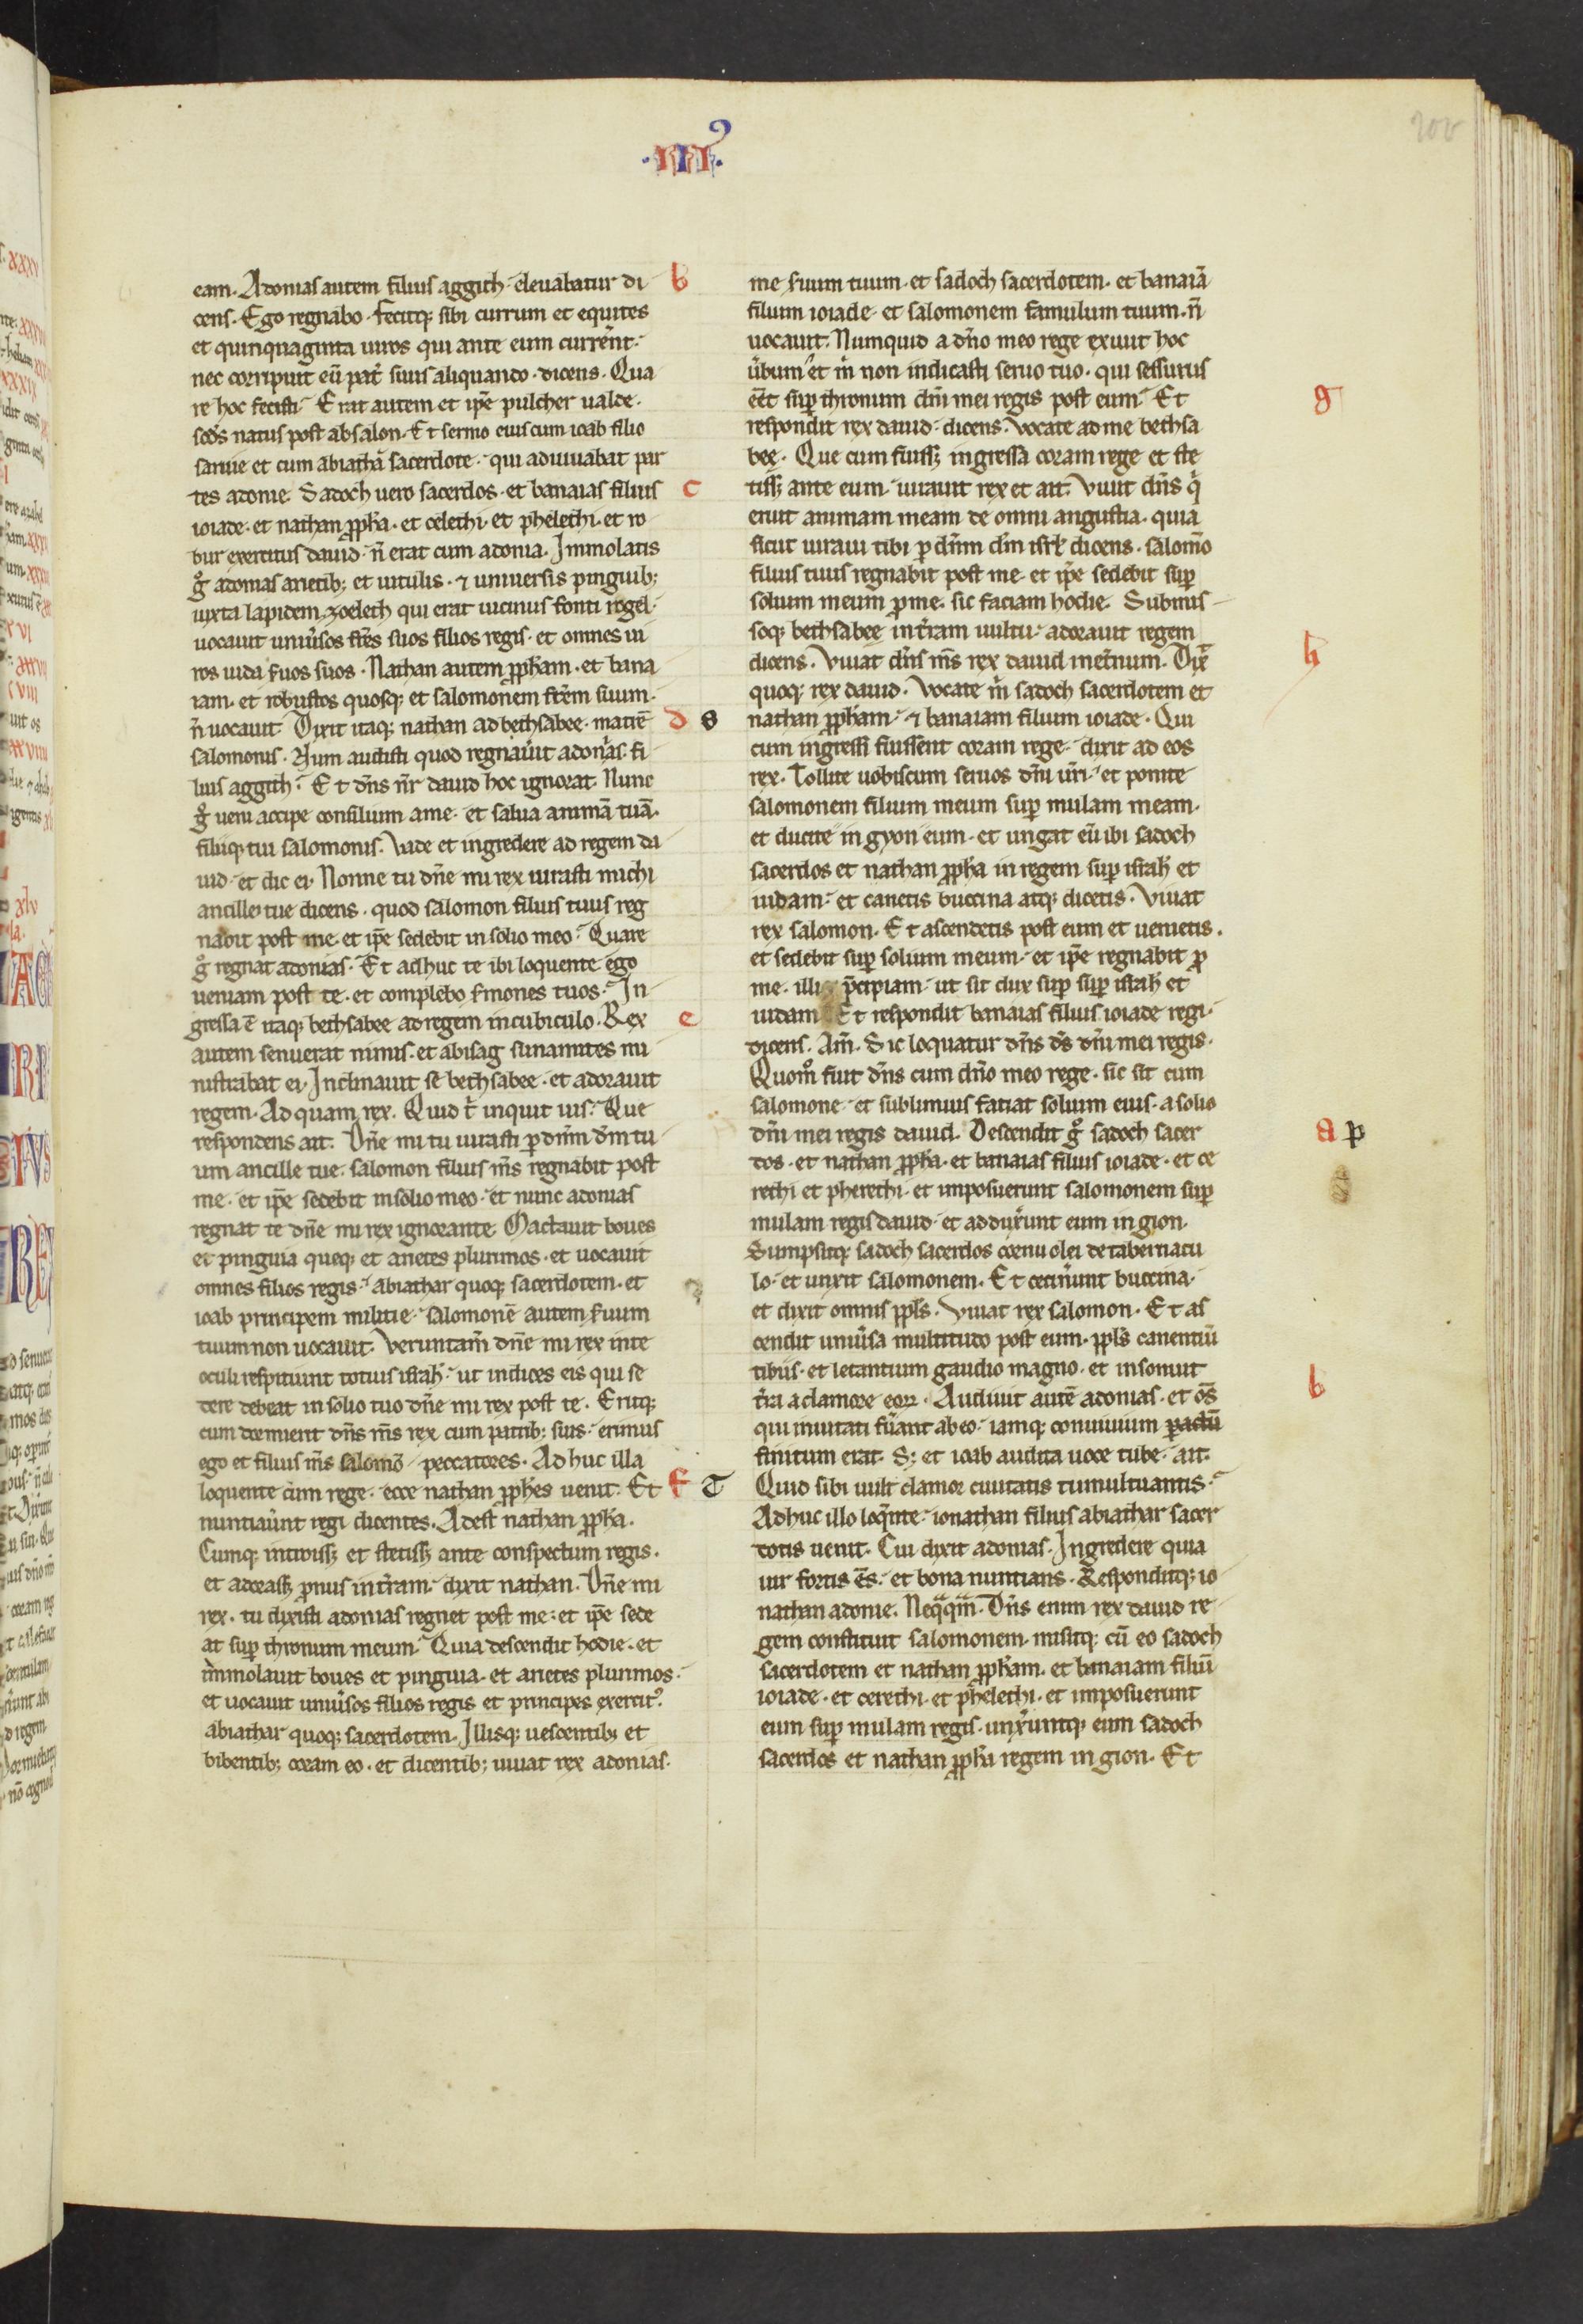 .III⁹.
205
eam. Adonias autem filius aggith eleuabatur di b
cens. Ego regnabo. fecitq; sibi currum et equites
et quinquaginta uiros qui ante eum current.
nec corripuit eū pat̄ suus aliquando. dicens. Qua
re hoc fecisti. Erat autem et ip̄e pulcher ualde.
scd̄s natus post absalon. Et sermo eius cum ioab filio
saruie et cum abiathā sacerdote. qui adiuuabat par
tes adonie. Sadoch uero sacerdos. et banaias filius c
ioiade. et nathan ꝓph̄a. et celethi. et phelethi. et ro
bur exercitus dauid. n̄ erat cum adonia. Immolatis
gͦ adonias arietib; et uitulis. ⁊ uniuersis pinguib;
iuxta lapidem zoelech qui erat uicinus fonti rogel.
uocauit uniu̓sos fr̄es suos filios regis. et omnes ui
ros iuda s̓uos suos. Nathan autem ꝓph̄am. et bana
iam. et robustos quosq; et salomonem fr̄em suum.
n̄ uocauit. Dixit itaq; nathan ad bethsabee. matrē d s
salomonis. Num audisti quod regnau̓it adonias. fi
lius aggith. Et dn̄s nr̄ dauid hoc ignorat. Nunc
gͦ ueni accipe consilium a me. et salua animā tuā.
filiiq; tui salomonis. Vade et ingredere ad regem da
uid. et dic ei. Nonne tu dn̄e mi rex iurasti michi
ancille tue dicens. quod salomon filius tuus reg
nabit post me. et ip̄e sedebit in solio meo. Quare
gͦ regnat adonias. Et adhuc te ibi loquente ego
ueniam post te. et complebo s̓mones tuos. In
gressa ē itaq; bethsabee ad regem in cubiculo. Rex e
autem senuerat nimis. et abisag sunamites mi
nistrabat ei. Inclinauit se bethsabee. et adorauit
regem. Ad quam rex. Quid t̄ inquit uis. Que
respondens ait. Dn̄e mi tu iurasti ꝑ dn̄m dm̄ tu
um ancille tue. salomon filius ms̄ regnabit post
me. et ip̄e sedebit in solio meo. et nunc adonias
regnat te dn̄e mi rex ignorante. Mactauit boues
et pinguia queq; et arietes plurimos. et uocauit
omnes filios regis. abiathar quoq; sacerdotem. et
ioab principem militie. salomonē autem s̓uum
tuum non uocauit. Veruntam̄ dn̄e mi rex in te
oculi respiciunt totius isrl̄. ut indices eis qui se
dere debeat in solio tuo dn̄e mi rex post te. Eritq;
cum dormierit dn̄s ms̄ rex cum patrib; suis. erimus
ego et filius ms̄ salomō peccatores. Adhuc illa
loquente cum rege. ecce nathan ꝓph̄es uenit. Et f T
nuntiau̓unt regi dicentes. Adest nathan ꝓph̄a.
Cumq; introiss; et stetiss; ante conspectum regis.
et adorass; ꝓnus in tr̄am. dixit nathan. Dn̄e mi
rex. tu dixisti adonias regnet post me. et ip̄e sede
at suꝑ thronum meum. Quia descendit hodie. et
immolauit boues et pinguia. et arietes plurimos.
et uocauit uniu̓sos filios regis et principes exercit⁹.
abiathar quoq; sacerdotem. Illisq; uescentib; et
bibentib; coram eo. et dicentib; uiuat rex adonias.
me s̓uum tuum. et sadoch sacerdotem. et banaiā
filium ioiade. et salomonem famulum tuum. n̄
uocauit. Numquid a dn̄o meo rege exiuit hoc
u̓bum et m̄ non indicasti seruo tuo. qui sessurus
eēt suꝑ thronum dn̄i mei regis post eum. Et g
respondit rex dauid. dicens. Vocate ad me bethsa
bee. Que cum fuiss; ingressa coram rege et ste
tiss; ante eum. iurauit rex et ait. Viuit dn̄s qͥ
eruit animam meam de omni angustia. quia
sicut iuraui tibi ꝑ dn̄m dm̄ isrl̄ dicens. salomō
filius tuus regnabit post me. et ip̄e sedebit suꝑ
solium meum ꝓ me. sic faciam hodie. Submis
soq; bethsabee in tr̄am uultu. adorauit regem
dicens. Viuat dn̄s ms̄ rex dauid inet̓num. Dix̄ h
quoq; rex dauid. Vocate m̄ sadoch sacerdotem et
nathan ꝓph̄am. ⁊ banaiam filium ioiade. Qui
cum ingressi fuissent coram rege. dixit ad eos
rex. Tollite uobiscum seruos dn̄i ur̄i. et ponite
salomonem filium meum suꝑ mulam meam.
et ducite in gyon eum. et ungat eū ibi sadoch
sacerdos et nathan ꝓph̄a in regem suꝑ isrl̄ et
iudam. et canetis buccina atq; dicetis. Viuat
rex salomon. Et ascendetis post eum et uenietis.
et sedebit suꝑ solium meum. et ip̄e regnabit ꝓ
me. illi p̄cipiam. ut sit dux suꝑ suꝑ isrl̄ et
iudam. Et respondit banaias filius ioiade regi.
dicens. Am̄. Sic loquatur dn̄s ds̄ dn̄i mei regis.
Quomͦ fuit dn̄s cum dn̄o meo rege. sic sit cum
salomone. et sublimius faciat solium eius. a solio
dn̄i mei regis dauid. Descendit gͦ sadoch sacer a p
dos. et nathan ꝓph̄a. et banaias filius ioiade. et ce
rethi et pherethi. et imposuerunt salomonem suꝑ
mulam regis dauid. et addux̓unt eum in gion.
Sumpsitq; sadoch sacerdos cornu olei de tabernacu
lo. et unxit salomonem. Et cecin̓unt buccina.
et dixit omnis ppl̄s. Viuat rex salomon. Et as
cendit uniu̓sa multitudo post eum. ppl̄s canentiū
tibiis. et letantium gaudio magno. et insonuit
tr̄a a clamore eoꝝ. Audiuit autē adonias. et oēs b
qui inuitati fu̓ant ab eo. iamq; conuiuium ꝑactū
finitum erat. S; et ioab audita uoce tube. ait.
Quid sibi uult clamor ciuitatis tumultuantis.
Adhuc illo loqͣnte. ionathan filius abiathar sacer
dotis uenit. Cui dixit adonias. Ingredere quia
uir fortis es. et bona nuntians. Responditq; io
nathan adonie. Neqͣqͣm. Dn̄s enim rex dauid re
gem constituit salomonem. misitq; cū eo sadoch
sacerdotem et nathan ꝓph̄am. et banaiam filiū
ioiade. et cerethi. et phelethi. et imposuerunt
eum suꝑ mulam regis. unx̓untq; eum sadoch
sacerdos et nathan ꝓph̄a regem in gion. Et